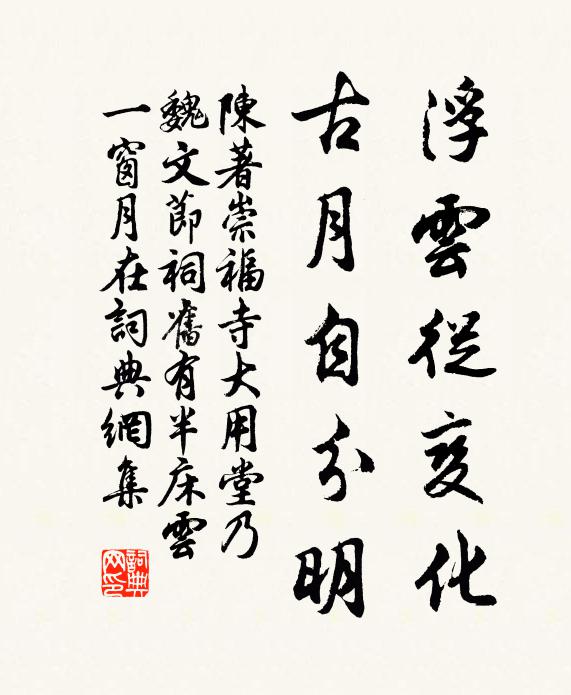 浮雲從变化
古月自分明
陳著崇福寺大用堂乃
魏文節祠舊有半床雲
一窗月在詞典網集
詞典
网印